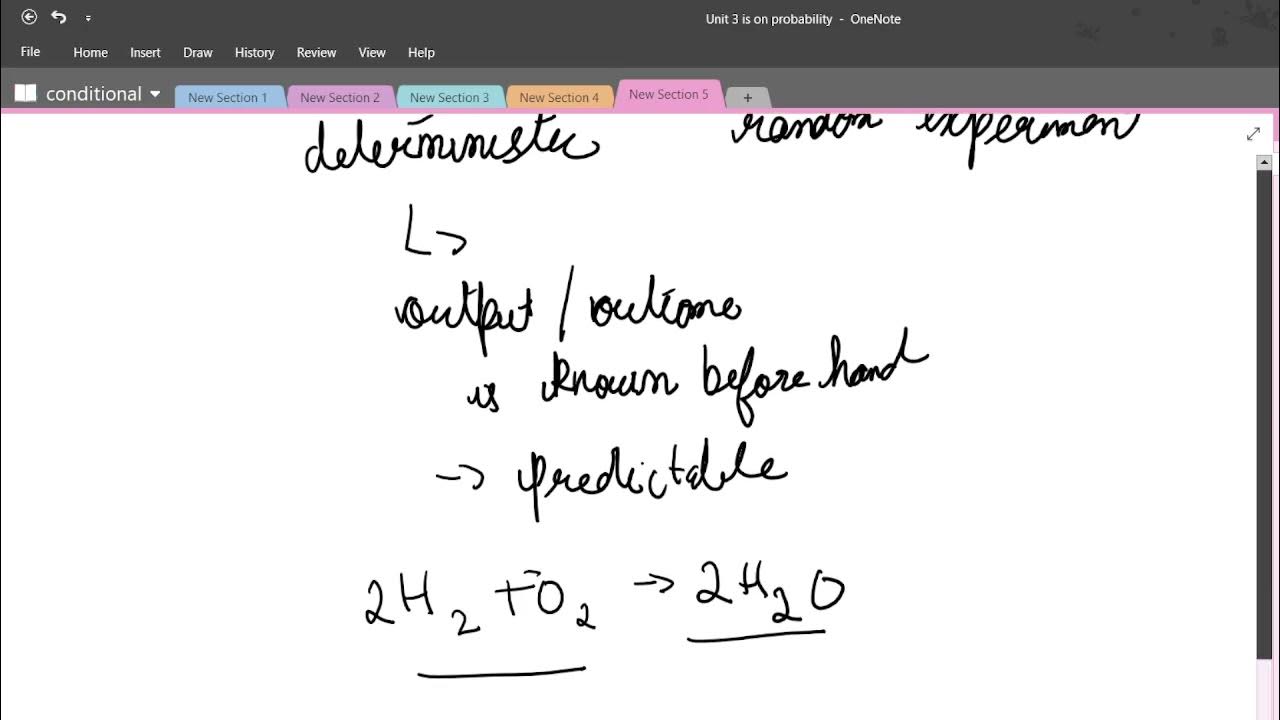 Unit 3 is on probability - OneNote
File Home Insert Draw History Review View Help
conditional New Section 1 New Section 2 New Section 3 New Section 4 New Section 5 +
deterministic random experimen
↳
output / outcome
is known before hand
→ predictable
2H₂ + O₂ → 2H₂O